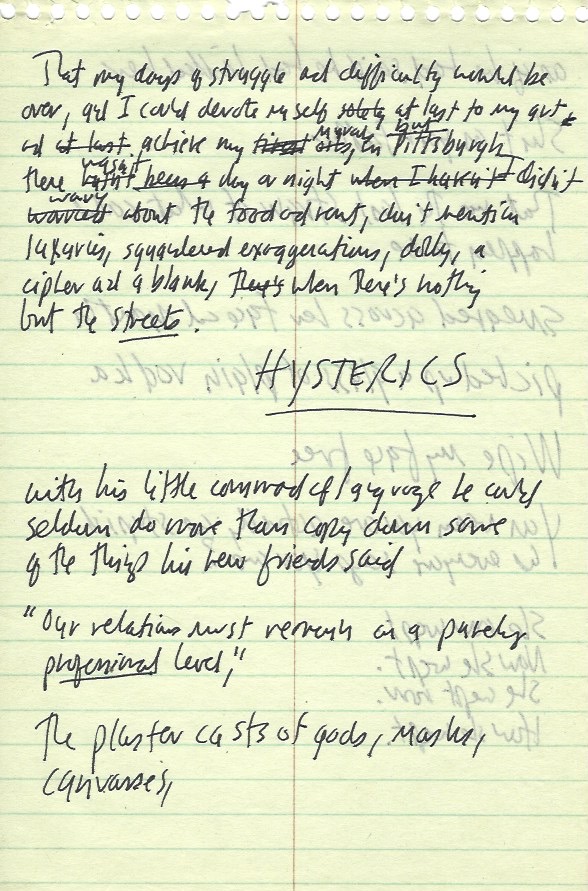 That my days of struggle and difficulty would be
over, and I could devote myself solely at last to my art
and at last achieve my finest arts, in Pittsburgh
mural but
there hasn't been a day or night when I haven't didn't
wasn't I
worried about the food and rent, don't mention
worry
luxuries, squandered exaggerations, dolly, a
cipher and a blank, that's when there's nothing
but the streets.
HYSTERICS
with his little command of language he could
seldom do more than copy down some
of the things his new friends said
"Our relations must remain on a purely
professional level,"
The plaster casts of gods, masks,
canvasses,